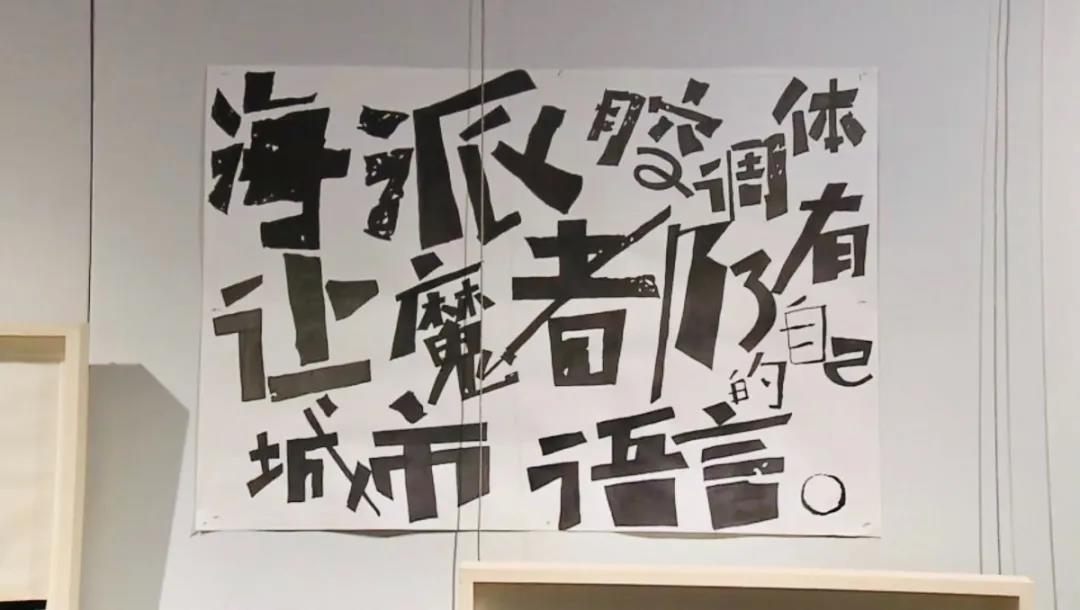 海派腔调体
让魔都有自己的
城市语言。